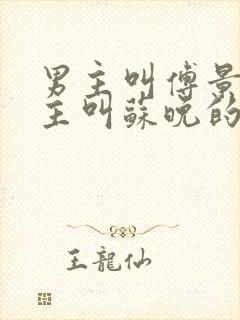 男主叫傅景
主叫蘇晚的
王龍仙